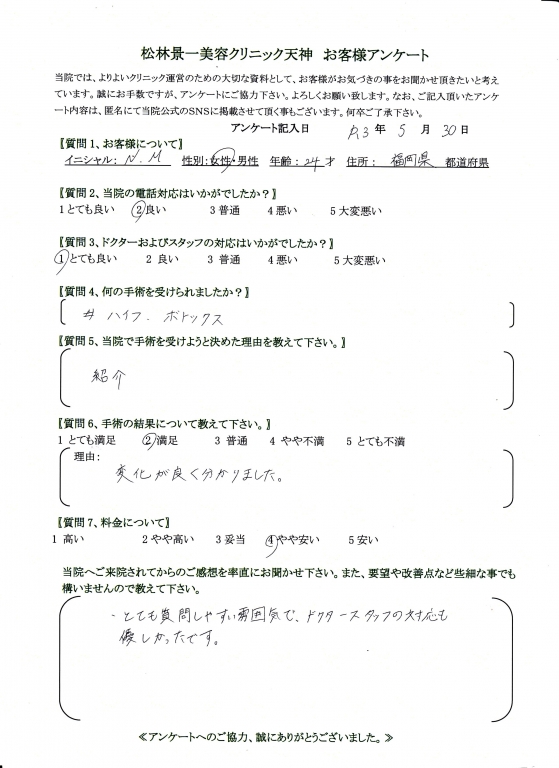 松林景一美容クリニック天神 お客様アンケート
当院では、よりよいクリニック運営のための大切な資料として、お客様がお気づきの事をお聞かせ頂きたいと考え
ています。誠にお手数ですが、アンケートにご協力下さい。よろしくお願い致します。なお、ご記入頂いたアンケ
ート内容は、匿名にて当院公式のSNSに掲載させて頂く事もございます。何卒ご了承下さい。
アンケート記入日 R3 年 5 月 30 日
〖質問1、お客様について〗
イニシャル: N.M 性別:女性・男性 年齢:24才 住所: 福岡県 都道府県
〖質問2、当院の電話対応はいかがでしたか?〗
1とても良い ②良い 3普通 4悪い 5大変悪い
〖質問3、ドクターおよびスタッフの対応はいかがでしたか?〗
①とても良い 2 良い 3 普通 4悪い 5大変悪い
〖質問4、何の手術を受けられましたか?〗
# ハイフ. ボトックス
〖質問5、当院で手術を受けようと決めた理由を教えて下さい。〗
紹介
〖質問6、手術の結果について教えて下さい。〗
1 とても満足 ②満足 3 普通 4 やや不満 5 とても不満
理由:
変化が良く分かりました。
〖質問7、料金について〗
1 高い 2やや高い 3妥当 ④やや安い 5安い
当院へご来院されてからのご感想を率直にお聞かせ下さい。また、要望や改善点など些細な事でも
構いませんので教えて下さい。
・とても質問しやすい雰囲気で、ドクタースタッフの対応も
優しかったです。
≪アンケートへのご協力、誠にありがとうございました。≫